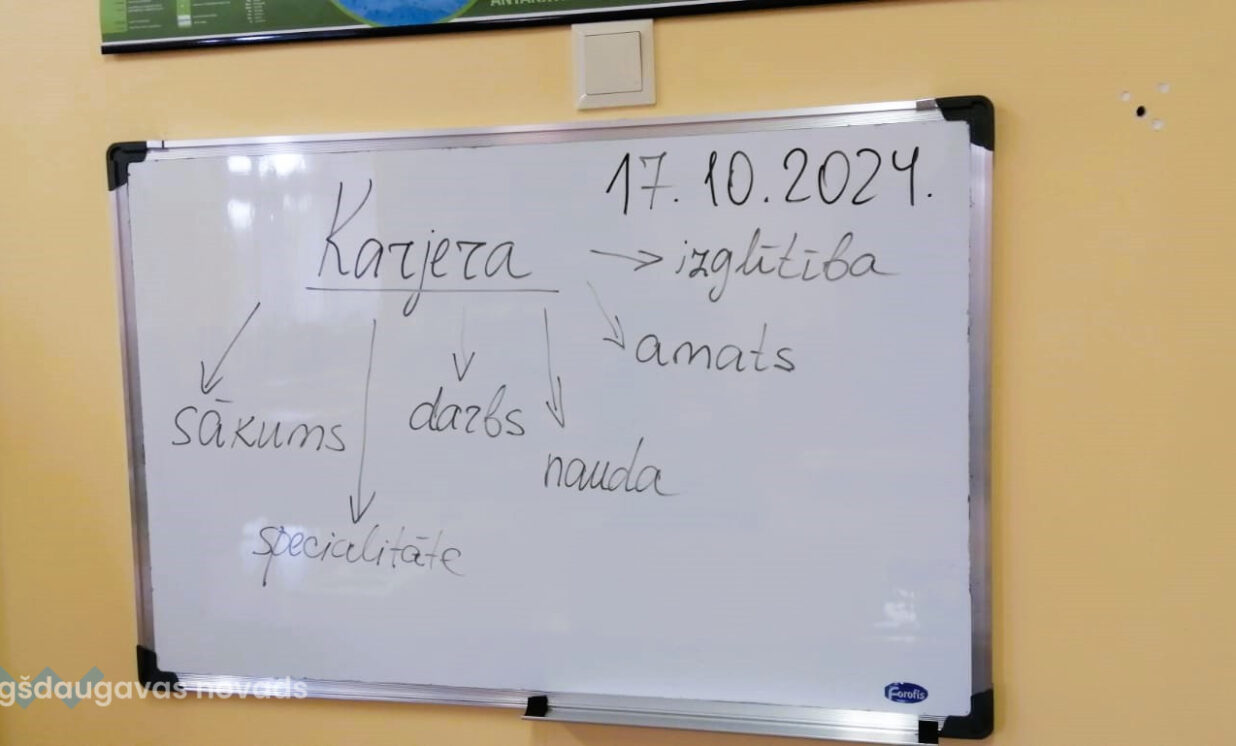 17.10.2024.
Karjera
izglītība
amats
sākums
darbs
nauda
specialitāte
Forofis
gšdaugavas novads